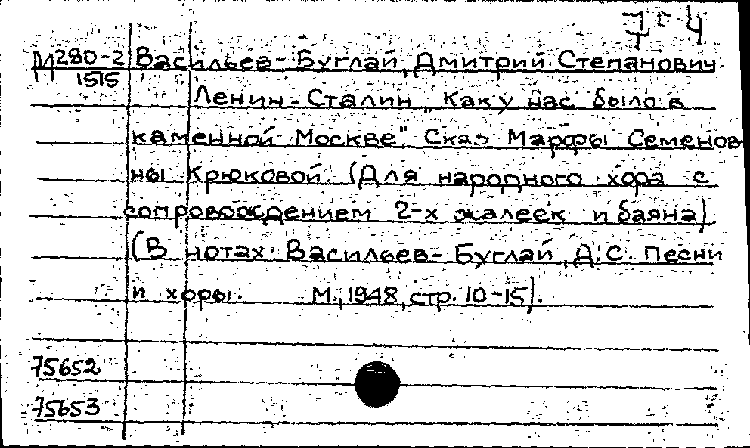 7г-4
М280-2 Васильев-Буглай, Дмитрий Степанович.
1515
Ленин-Сталин „Как у нас было в
каменной Москве" Сказ Марфы Семенов
ны Крюковой. (Для народного хора с
сопровождением 2-х жалеек и баяна)
(В нотах: Васильев-Буглай, Д.С. Песни
и хоры. М., 1948, стр. 10-15).
75652
75653